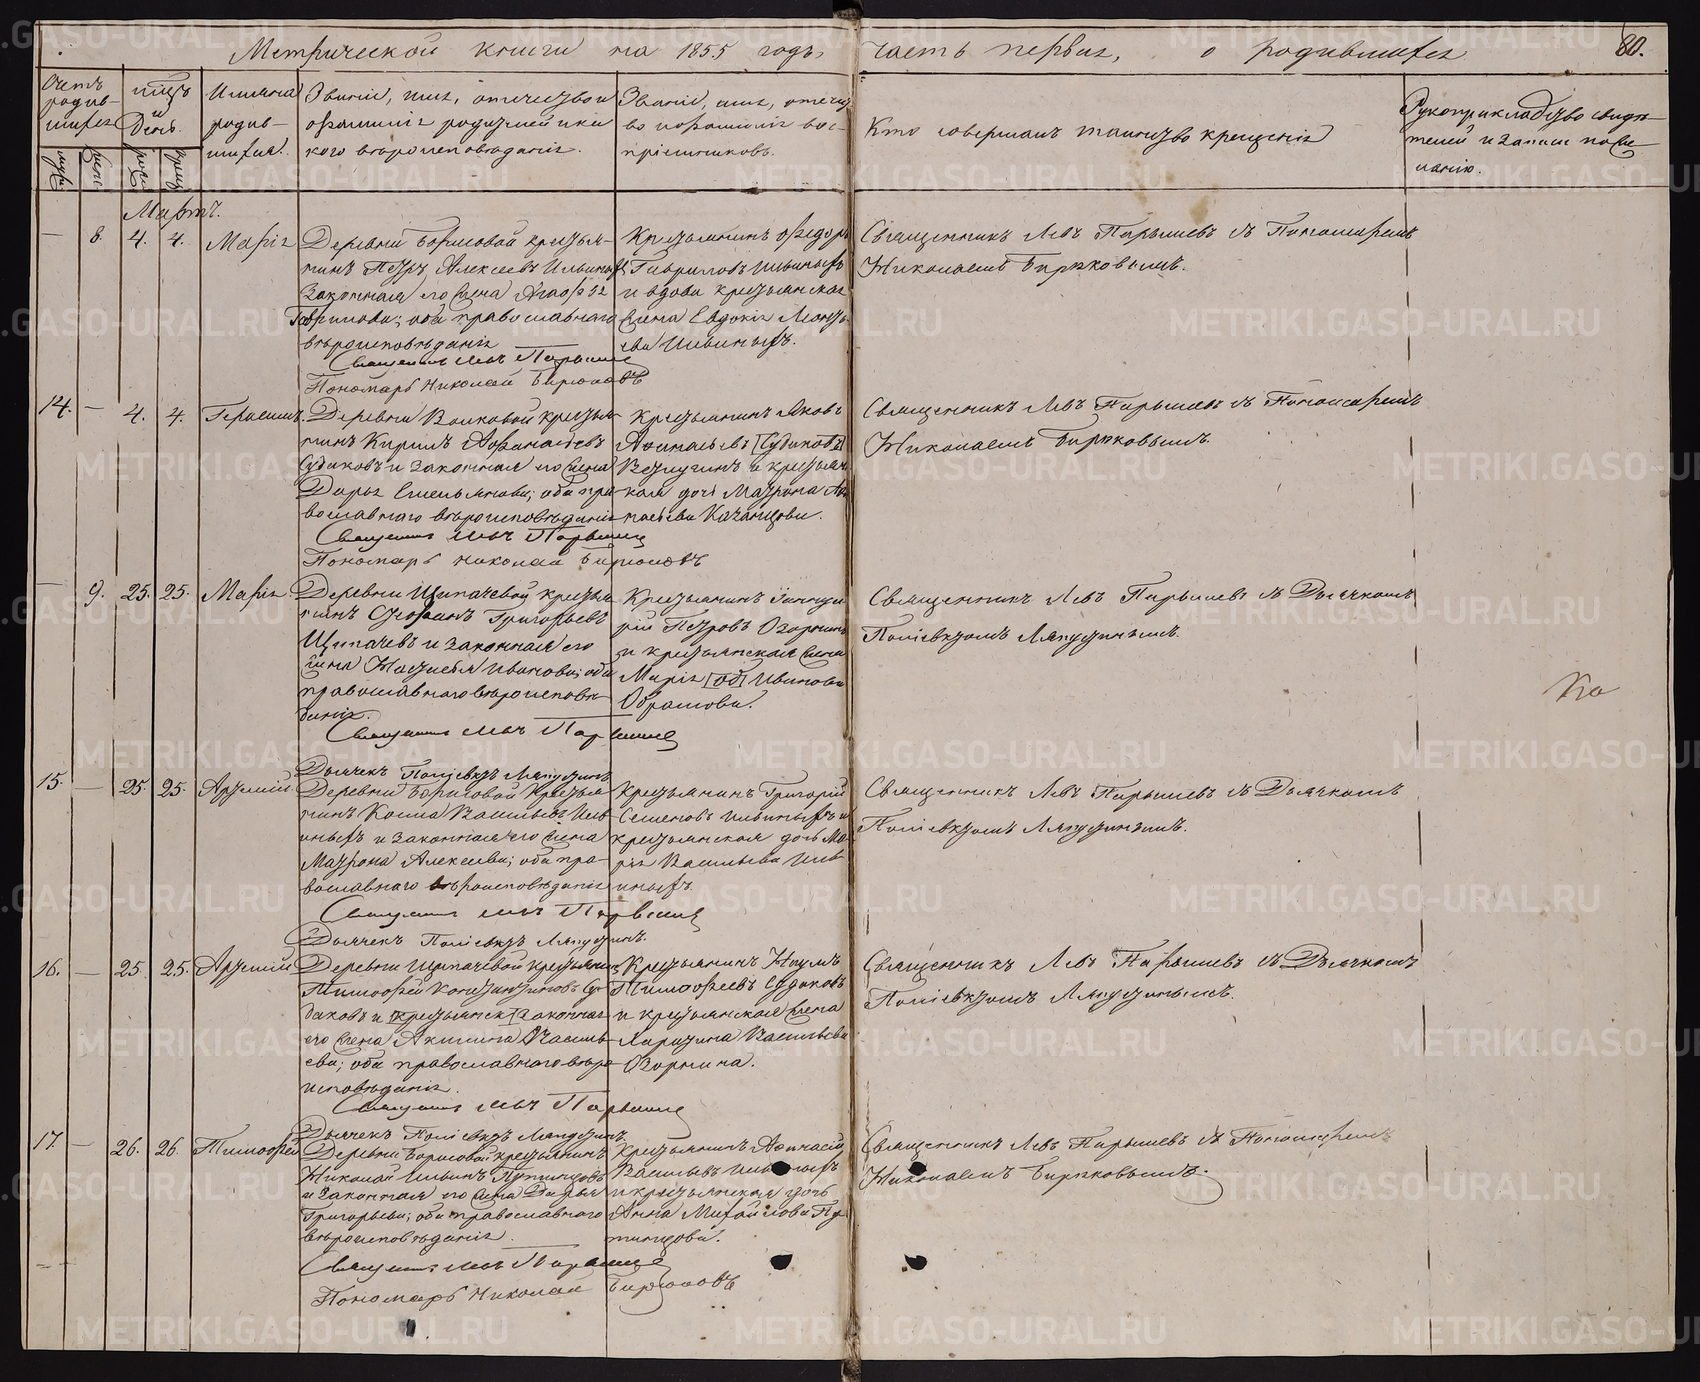 Метрической книги на 1855 годъ, часть первая, о родившихся
80.
Счетъ родив-шихся
мѣсяцъ и День.
Имяна родив-шихся.
Званіе, имя, отечество и фамилія родителей и ка-кого вѣроисповѣданія.
Званіе, имя, отечест-во и фамилія вос-пріемниковъ.
Кто совершалъ таинство крещенія
Рукоприкладство свидѣ-телей и записи по же-ланію.
Мартъ.
— 8. 4. 4. Марія
Деревни Борисовой крестья-
нинъ Петръ Алексеевъ Ильиныхъ
Законная его жена
Гаврилова; оба православнаго
вѣроисповѣданія
Священникъ Левъ Парышевъ
Пономарь Николай Бирюковъ
Крестьянинъ Ѳедоръ
Гавриловъ Ильиныхъ
и вдова крестьянская
жена Евдокія
Ильиныхъ.
Священникъ Левъ Парышевъ съ Пономаремъ
Николаемъ Бирюковымъ.
14. — 4. 4. Герасимъ.
Деревни Волковой крестья-
нинъ Кирилъ Аѳанасьевъ
Судаковъ и законная его жена
Дарья Емельянова; оба пра-
вославнаго вѣроисповѣданія
Священникъ Левъ Парышевъ
Пономарь Николай Бирюковъ
Крестьянинъ Яковъ
[Судаковъ]
и крестьян-
ская дочь Матрона
Казанцова.
Священникъ Левъ Парышевъ съ Пономаремъ
Николаемъ Бирюковымъ.
— 9. 25. 25. Марія
Деревни Щипачевой крестья-
нинъ Стефанъ Григорьевъ
Щипачевъ и законная его
жена Настасья Иванова; оба
православнаго вѣроисповѣ-
данія.
Священникъ Левъ Парышевъ
Дьячекъ Поліевктъ Ляпустинъ
Крестьянинъ
Петровъ Озорнинъ
и крестьянская жена
Марія [об] Иванова
Священникъ Левъ Парышевъ съ Дьячкомъ
Поліевктомъ Ляпустинымъ.
15. — 25. 25. Артемій.
Деревни Борисовой Крестья-
нинъ Косма Васильевъ Иль-
иныхъ и законная его жена
Матрона Алексеева; оба пра-
вославнаго вѣроисповѣданія
Священникъ Левъ Парышевъ
Дьячекъ Поліевктъ Ляпустинъ.
Крестьянинъ Григорій
Семеновъ Ильиныхъ и
крестьянская дочь Ма-
рія Васильева Иль-
иныхъ.
Священникъ Левъ Парышевъ съ Дьячкомъ
Поліевктомъ Ляпустинымъ.
16. — 25. 25. Артемій
Деревни Щипачевой крестьянинъ
Тимоѳей Константиновъ Су-
даковъ и [крестьянск] законная
его жена Акилина Василь-
ева; оба православнаго вѣро-
исповѣданія.
Священникъ Левъ Парышевъ
Дьячекъ Поліевктъ Ляпустинъ
Крестьянинъ Наумъ
Тимоѳеевъ Судаковъ
и крестьянская жена
Васильева
Озорнина.
Священникъ Левъ Парышевъ съ Дьячкомъ
Поліевктомъ Ляпустинымъ.
17 — 26. 26. Тимоѳей
Деревни Борисовой крестьянинъ
Николай Ильинъ
и законная его жена Дарья
Григорьева; оба православнаго
вѣроисповѣданія.
Священникъ Левъ Парышевъ
Пономарь Николай Бирюковъ
Крестьянинъ Аѳанасій
Васильевъ Ильиныхъ
и крестьянская дочь
Анна Михайлова
Священникъ Левъ Парышевъ съ Пономаремъ
Николаемъ Бирюковымъ.
METRIKI.GASO-URAL.RU